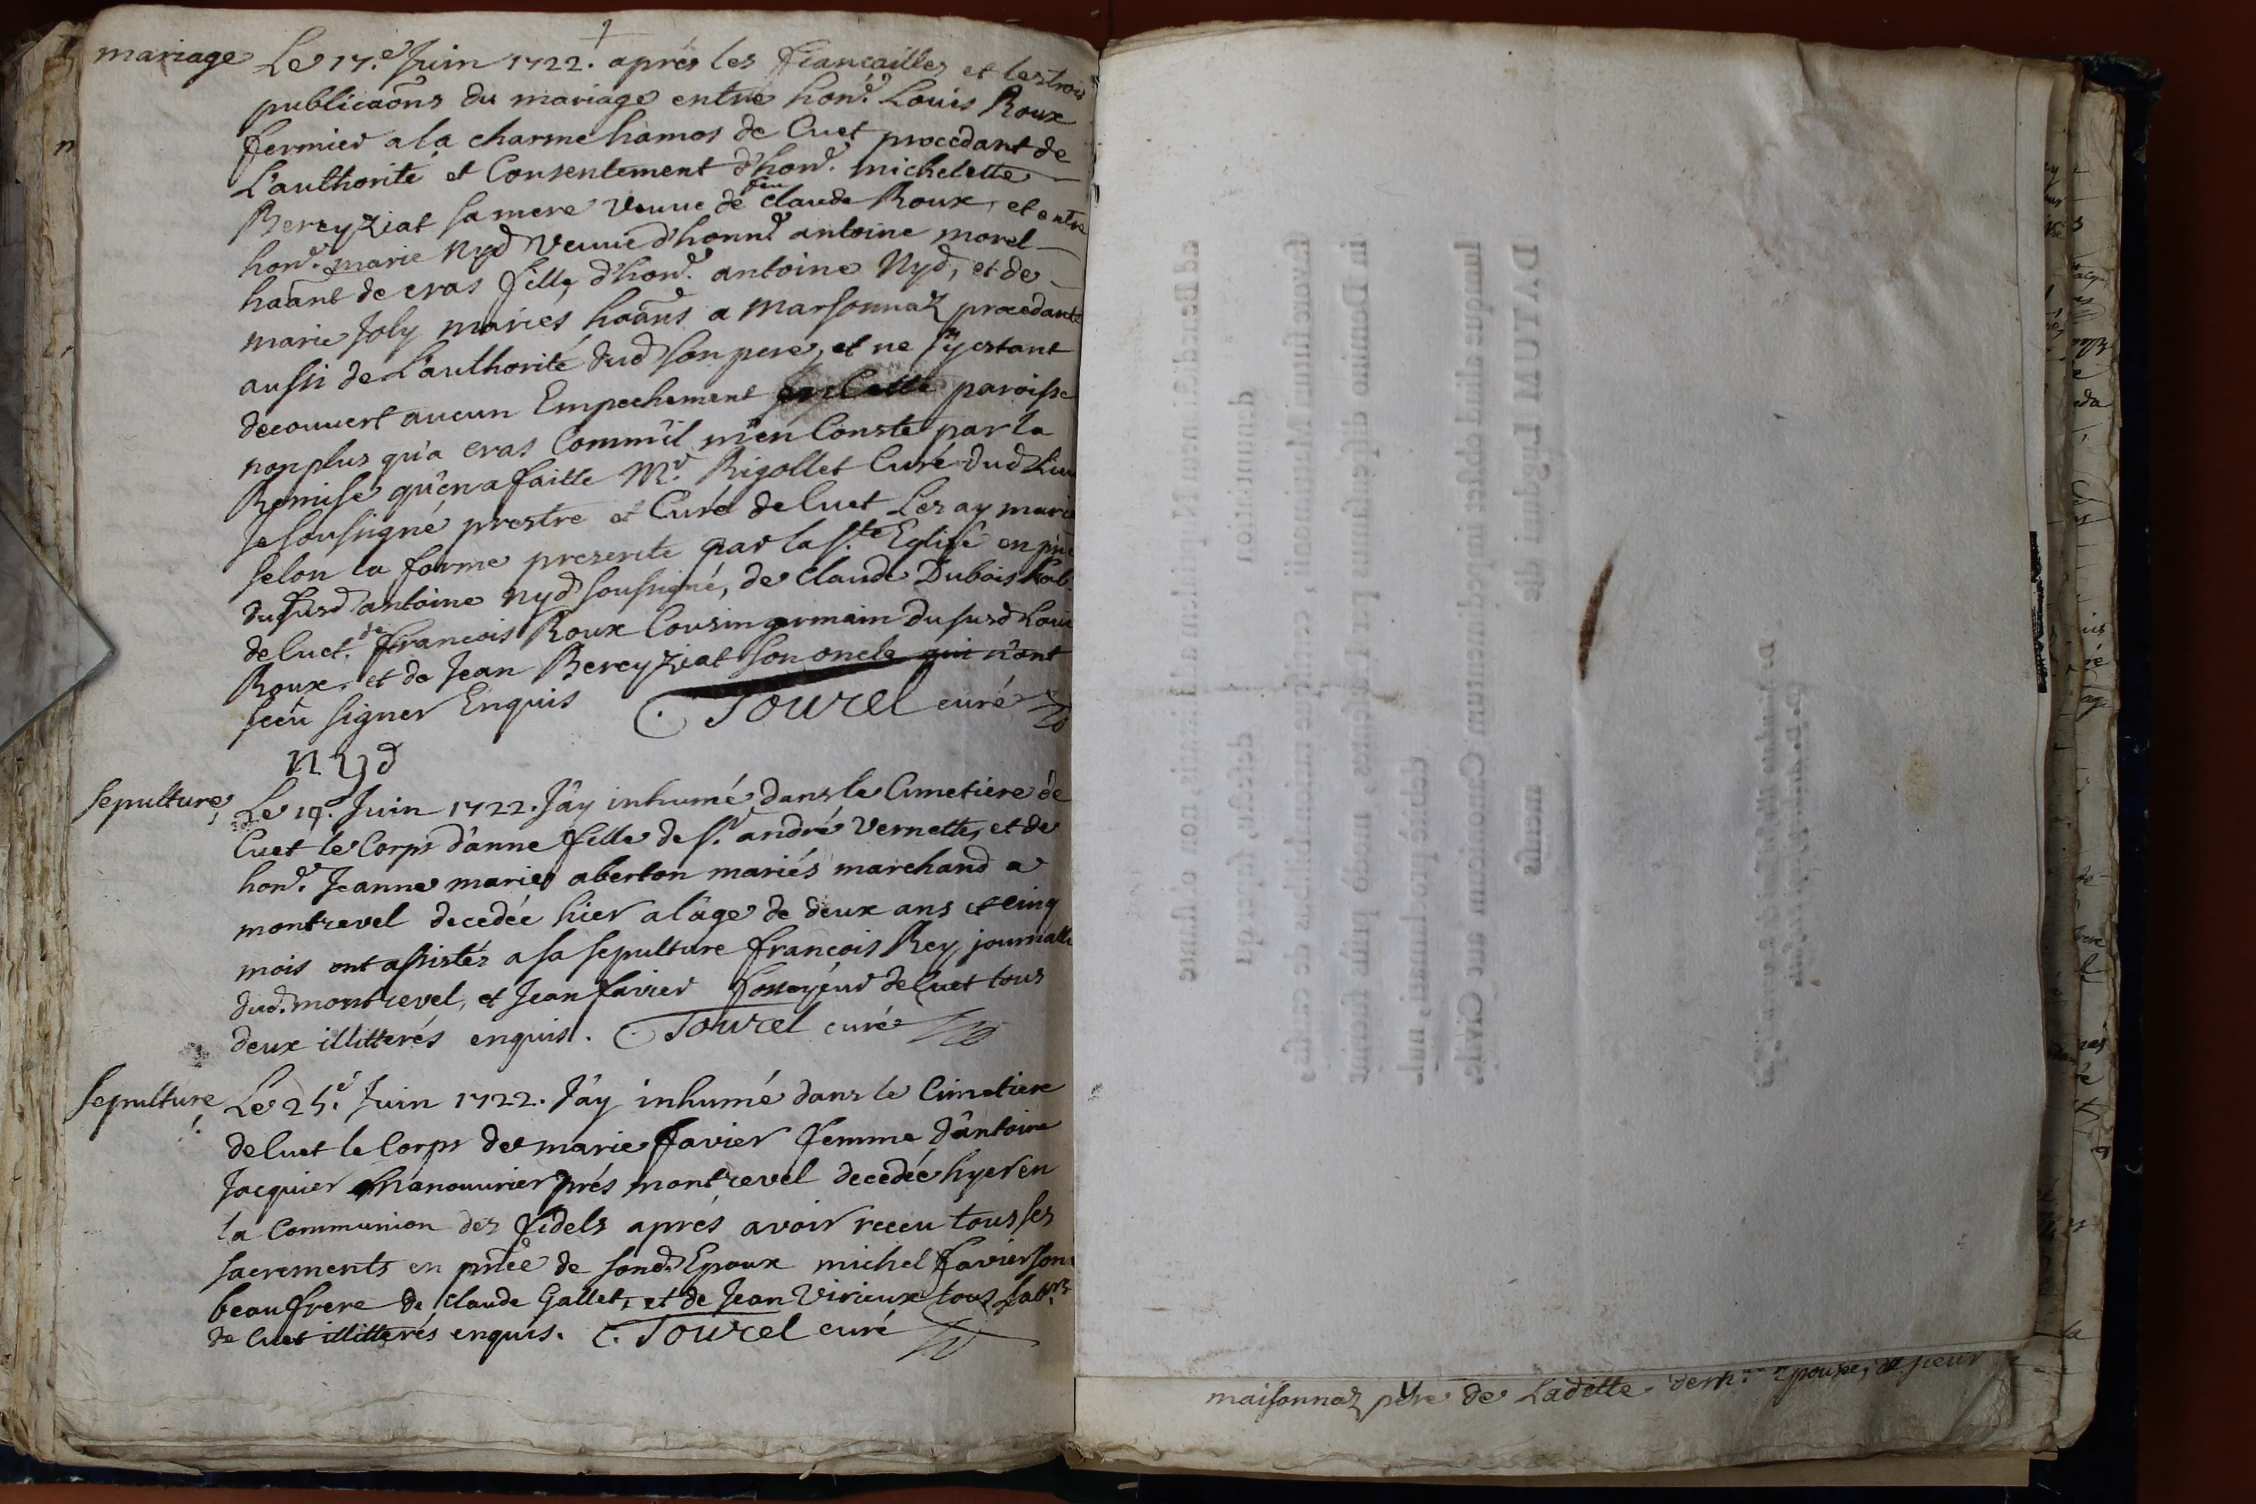 mariage Le 17.e Juin 1722. aprés les fiancailles et les trois
publicaõns du mariage entre hon.e Louis Roux
fermier a la charme hamos de Cuet procedant de
L'authorité et Consentement d'hon.e michelette
Bereyziat sa mere veuue de feu claude Roux, et entre
hon.e marie Nyd veuue d'honn.e antoine morel
haãnt de cras fille d'hon.e antoine Nyd, et de
marie Joly mariés haãns a Marsonnaz procedante
aussi de L'authorité dud son pere, et ne s'y estant
decouuert aucun Empechement paroisse
non plus qu'a cras Comm'il m'en Conste par la
Remise qu'en a faitte M.r Rigollet Curé dud Lieu
Je soussigné prestre et Curé de Cuet Les ay marié
selon la forme prescritte par la s.te Eglise en
du susd antoine nyd soussigné, de claude Dubois hab.
de Cuet. de francois Roux Cousin germain du susd Louis
Roux, et de Jean Bereyziat son oncle qui n'ont
sceu signer Enquis C. Tourel curé
Nyd
sepulture Le 19. Juin 1722. J'ay inhumé dans le Cimetiere de
Cuet le Corps d'anne fille de s.r andré Vernette, et de
hon.e Jeanne marie aberton mariés marchand a
montrevel decedée hier a l'age de deux ans et cinq
mois ont assistés a sa sepulture francois Rey journallier
dud. montrevel, et Jean favier fossoyeur de Cuet tous
deux illitterés enquis. C. Tourel curé
sepulture Le 25.e Juin 1722. J'ay inhumé dans le Cimetiere
de Cuet le Corps de marie favier femme d'antoine
Jacquier manouurier prés montrevel decedée hyer en
la Communion des fidels aprés avoir receu tous ses
sacrements en pñce de sond. Epoux michel favier son
beaufrere de claude Gallet, et de Jean Virieux tous Lab.rs
de Cuet illitterés enquis. C. Tourel curé
maisonnaz pere de Ladette epouse, et sieur